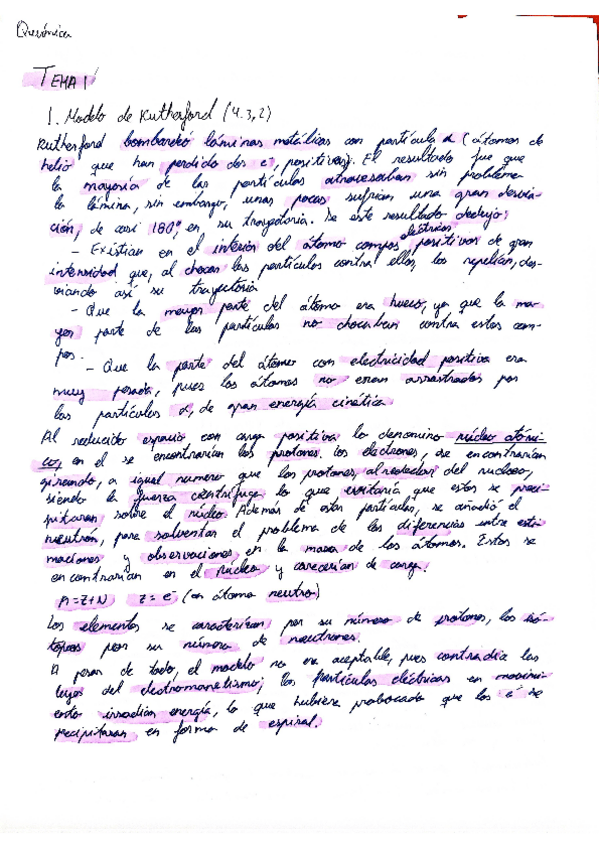 Química
TEMA 1
1. Modelo de Rutherford (4.3,2)
Rutherford bombardeó láminas metálicas con partícula α (átomos de
helio que han perdido dos e⁻, positivas). El resultado fue que
la mayoría de las partículas atravesaban sin problema
la lámina, sin embargo, unas pocas sufrían una gran desvia-
ción, de casi 180°, en su trayectoria. De este resultado dedujo:
- Existían en el interior del átomo campos eléctricos positivos de gran
intensidad que, al chocar las partículas contra ellos, los repelían, des-
viando así su trayectoria
- Que la mayor parte del átomo era hueco, ya que la ma-
yor parte de las partículas no chocaban contra estos cam-
pos.
- Que la parte del átomo con electricidad positiva era
muy pesada, pues los átomos no eran arrastrados por
las partículas α, de gran energía cinética
Al reducido espacio con carga positiva lo denomino núcleo atómi-
co, en el se encontrarían los protones. Los electrones, se encontrarían
girando, a igual numero que los protones, alrededor del nucleo,
siendo la fuerza centrífuga lo que evitaría que estos se preci-
pitaran sobre el núcleo. Además de estas partículas, se añadió el
neutrón, para solventar el problema de las diferencias entre esti-
maciones y observaciones en la masa de los átomos. Estos se
encontrarían en el núcleo y carecerían de carga.
A=Z+N Z = e⁻ (en átomo neutro)
Los elementos se caracterizan por su número de protones, los isó-
topos por su número de neutrones.
A pesar de todo, el modelo no era aceptable, pues contradía las
leyes del electromanetismo; las partículas eléctricas en movimi-
ento irradian energía, lo que hubiera probocado que los e⁻ se
precipitaran en forma de espiral.